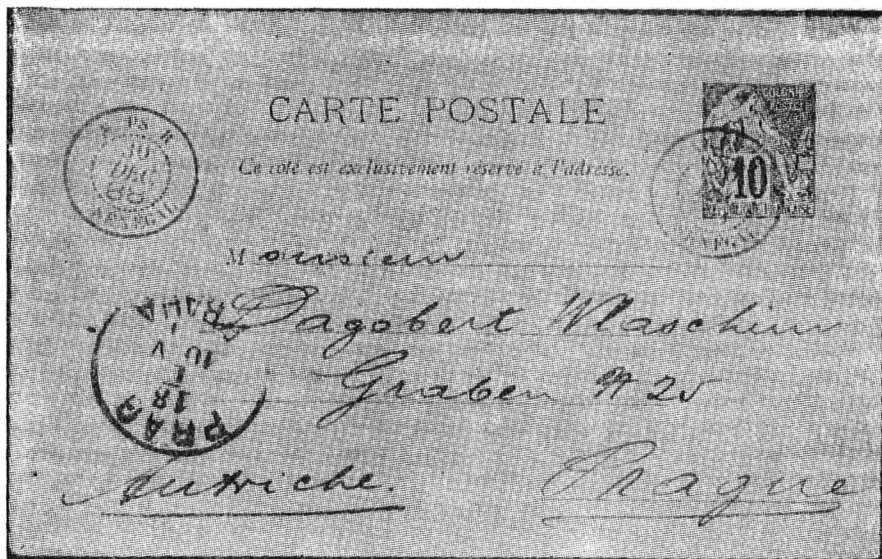 CARTE POSTALE
Ce coté est exclusivement réservé à l'adresse.
10
10
DEC
88
SENEGAL
Monsieur
Dagobert Wlaschim
Graben № 25
Autriche. Prague
PRAG
PRAHA